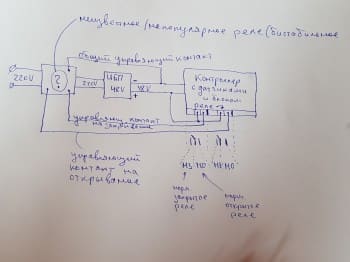 неизвестное/непопулярное реле (бистабильное
общий управляющий контакт
220V
?
220V
ИБП
48V
-
+
48V
Контроллер
с датчиками
и блоком
реле
управляющ контакт
управляющий
контакт на
открывание
НЗ
НО
НЗ
НО
норм
закрытое
реле
норм
открытое
реле